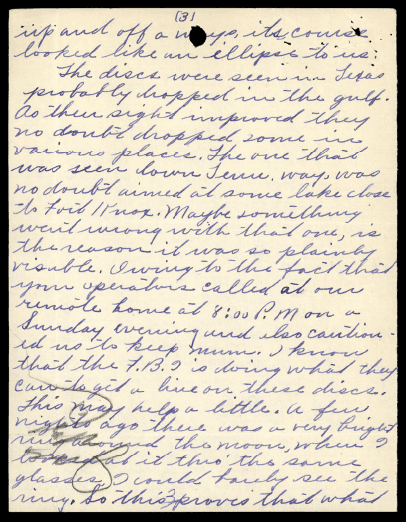 (3)
up and off a ways, its course
looked like an ellipse to us.
The discs were seen in Texas
probably dropped in the gulf.
As their sight improved they
no doubt dropped some in
various places. The one that
was seen down Tenn. way, was
no doubt aimed at some lake close
to Fort Knox. Maybe something
went wrong with that one, is
the reason it was so plainly
visible. Owing to the fact that
your operators called at our
remote home at 8:00 P.M on a
Sunday evening and also caution-
ed us to keep mum. I know
that the F.B.I is doing what they
can to get a line on these discs.
This may help a little. A few
nights ago there was a very bright
ring around the moon, when I
looked at it thro the same
glasses, I could barely see the
ring. So this proves that what